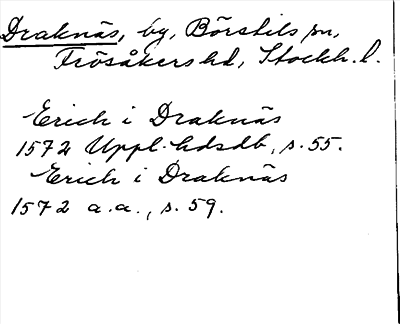 Draknäs, by, Börstils sn,
Frösåkers hd, Stockh. l.
Erich i Draknäs
1572 Uppl. hdsdb, s. 55.
Erich i Draknäs
1572 a.a., s. 59.